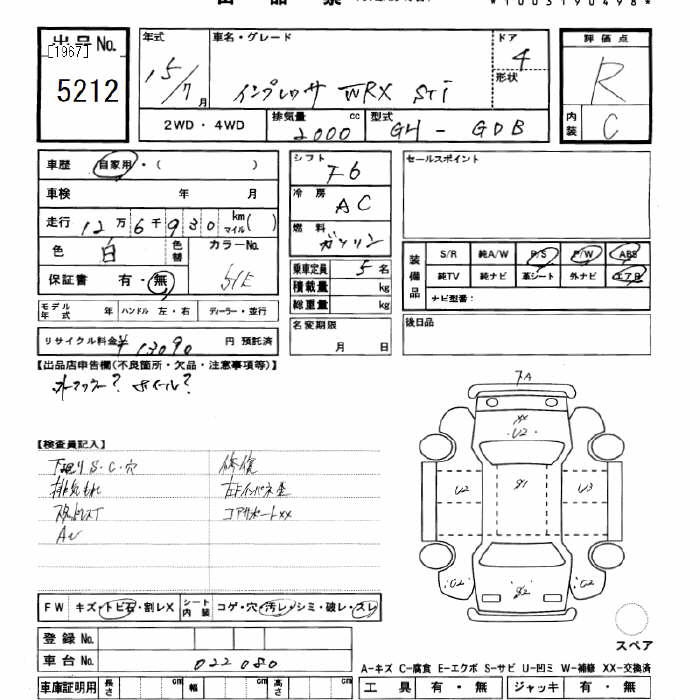 *10031904 98*
出品No.
[1967]
5212
年式
15/7月
車名・グレード
インプレッサ WRX STi
ドア
4
形状
評価点
R
内装
C
2WD・4WD
排気量
2000 cc
型式
GH - GDB
車歴 自家用・( )
車検 年 月
走行 12万6千930 km マイル( )
色 白
色替
カラーNo.
51E
保証書 有・無
モデル年式 年 ハンドル 左・右 ディーラー・並行
リサイクル料金 ¥13090 円 預託済
シフト
F6
冷房
AC
燃料
ガソリン
乗車定員 5名
積載量 kg
総重量 kg
名変期限
月 日
セールスポイント
装備品
S/R 純A/W P/S P/W ABS
純TV 純ナビ 革シート 外ナビ エアB
ナビ型番:
後日品
【出品店申告欄(不良箇所・欠品・注意事項等)】
マフラー? ホイール?
【検査員記入】
下廻りS・C・穴
排気もれ
AU
修復
コアサポートXX
FW キズ・トビ石・割レX
シート内装 コゲ・穴・汚レ・シミ・破レ・スレ
登録No.
車台No. 022080
車庫証明用 長さ cm 幅 cm 高さ cm
7A
XX
U2
U2
U3
U2
U2
スペア
A-キズ C-腐食 E-エクボ S-サビ U-凹ミ W-補修 XX-交換済
工具 有・無 ジャッキ 有・無